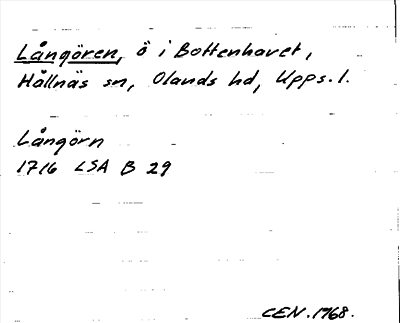 Långören, ö i Bottenhavet,
Hållnäs sn, Olands hd, Upps. l.
Långörn
1716 LSA B 29
CEN. 1968.